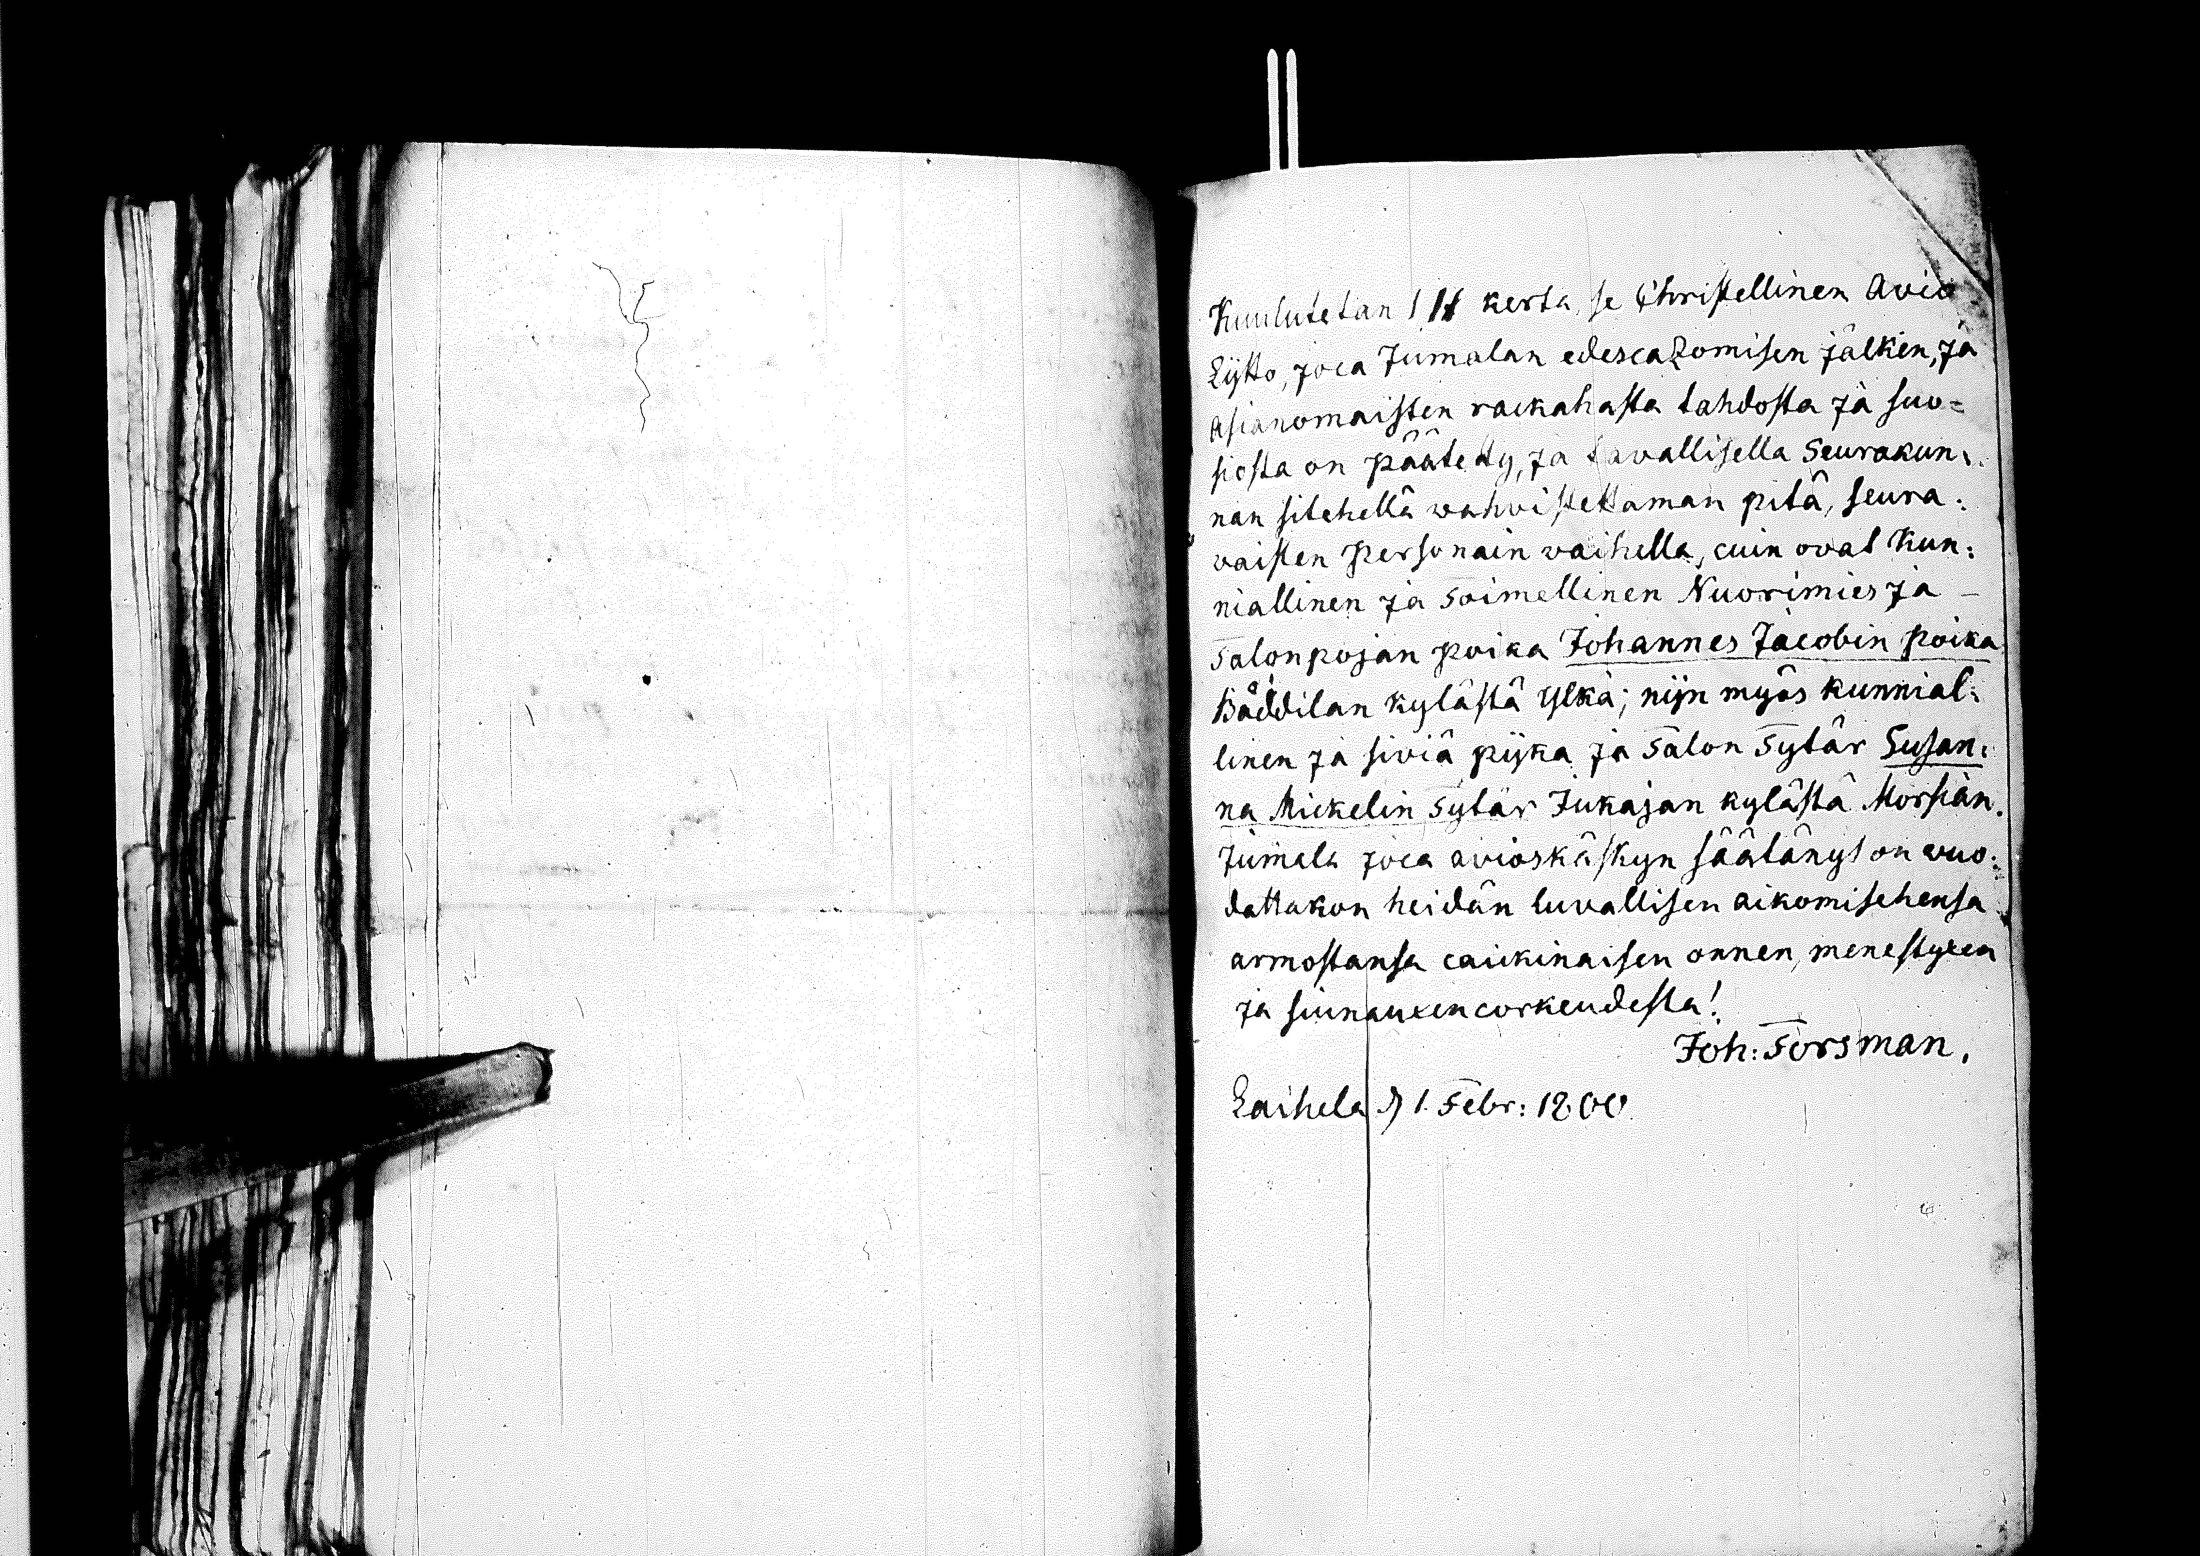 Kuulutetan 1 II kerta, se Christellinen Avio
Lijtto, joca Jumalan edescazomisen jälken, ja
asianomaisten rackahasta tahdosta ja suo=
siosta on päätetty, ja tavallisella Seurakun:
nan sitehellä wahvistettaman pitä, seura:
vaisten Personain vaihella, cuin ovat Kun:
niallinen ja Toimellinen Nuorimies ja –
Talonpojan poika Johannes Jacobin poika
Båddilan kylästä Ylkä; nijn myös kunnial:
linen ja siviä pijka ja Talon Tytär Susan:
na Mickelin Tytär Jukajan kylästä Morsian.
Jumala joca avioskäskyn säätänyt on wuo:
dattakon heidän luvallisen aikomisehensa
armostansa caickinaisen onnen, menestyxen
ja siunauxen corkeudesta!
Joh: Forsman.
Laihela D 1. Febr: 1800.